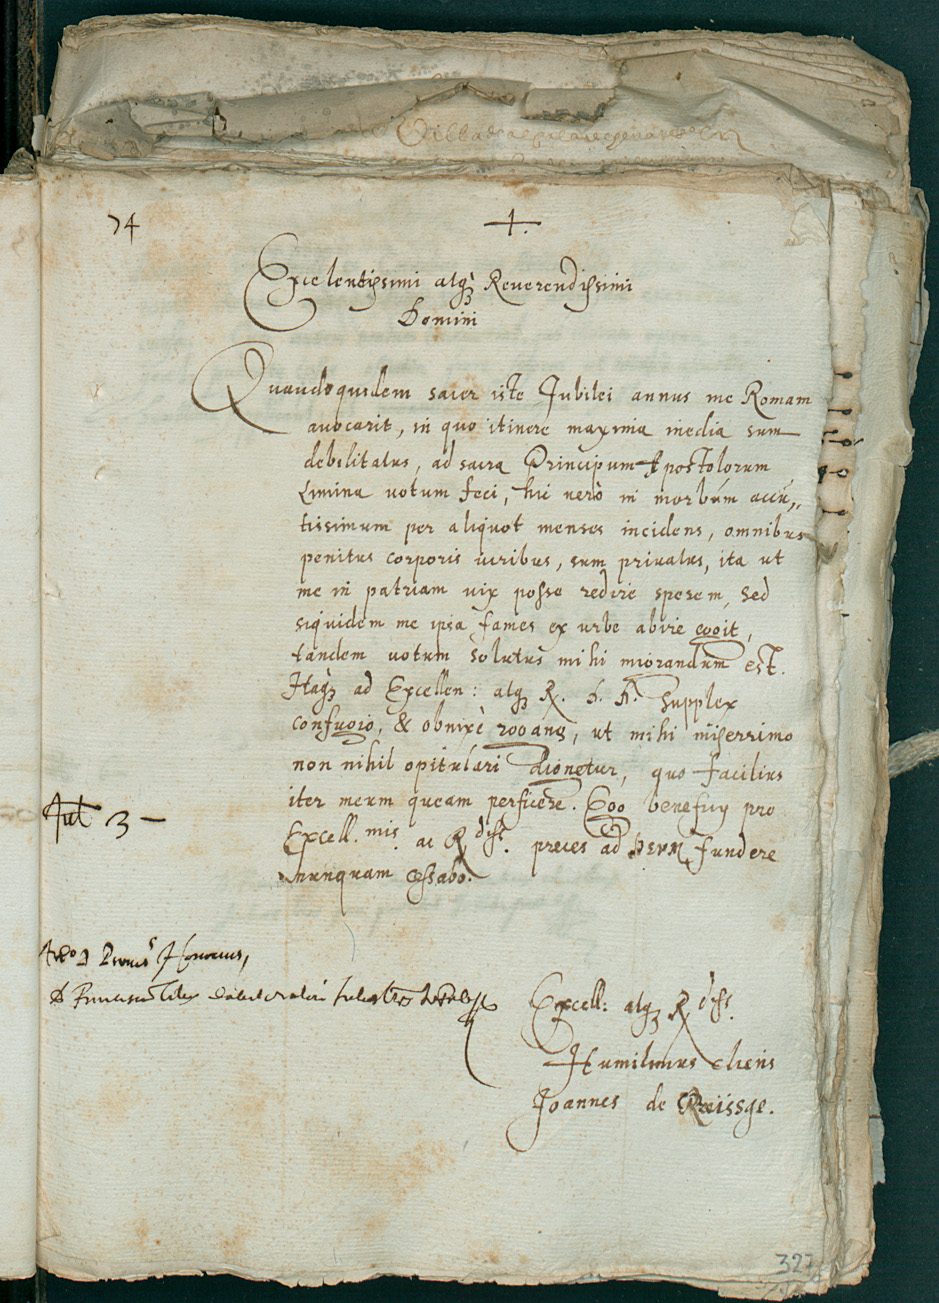 74
Excelentissimi atq; Reuerendissimi
Domini
Quandoquidem sacer iste Jubilei annus me Romam
auocarit, in quo itinere maxima inedia sum
debilitatus, ad sacra Principum Apostolorum
Limina uotum feci, hic uerò in morbum accu„
tissimum per aliquot menses incidens, omnibus
penitus corporis uiribus, sum priuatus, ita ut
me in patriam uix posse redire sperem, sed
siquidem me ipsa fames ex urbe abire cogit,
tandem uotum solutus mihi miorandum est.
Itaq; ad Excellen: atq; R. D. A. Supplex
confugio, & obnixè rogans, ut mihi miserrimo
non nihil opitulari dignetur, quo facilius
iter meum queam perficere. Ego benefijs pro
Jul 3 —
Excell.mis. ac R diss. preces ad DEUM fundere
nunquam cessabo.
Excell: atq; R diss.
Humilimus cliens
Joannes de Reissge.
327